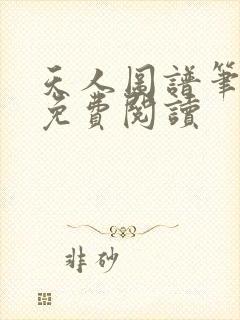 天人圖譜筆
免費閱讀
非砂